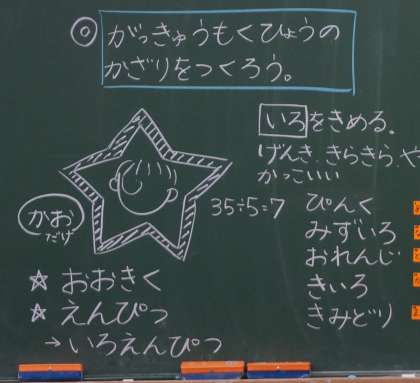 ◎ がっきゅうもくひょうの
かざりをつくろう。
かお
だけ
☆ おおきく
☆ えんぴつ
→ いろえんぴつ
35÷5=7
いろをきめる。
げんき、きらきら、や
かっこいい
ぴんく
みずいろ
おれんじ
きいろ
きみどり